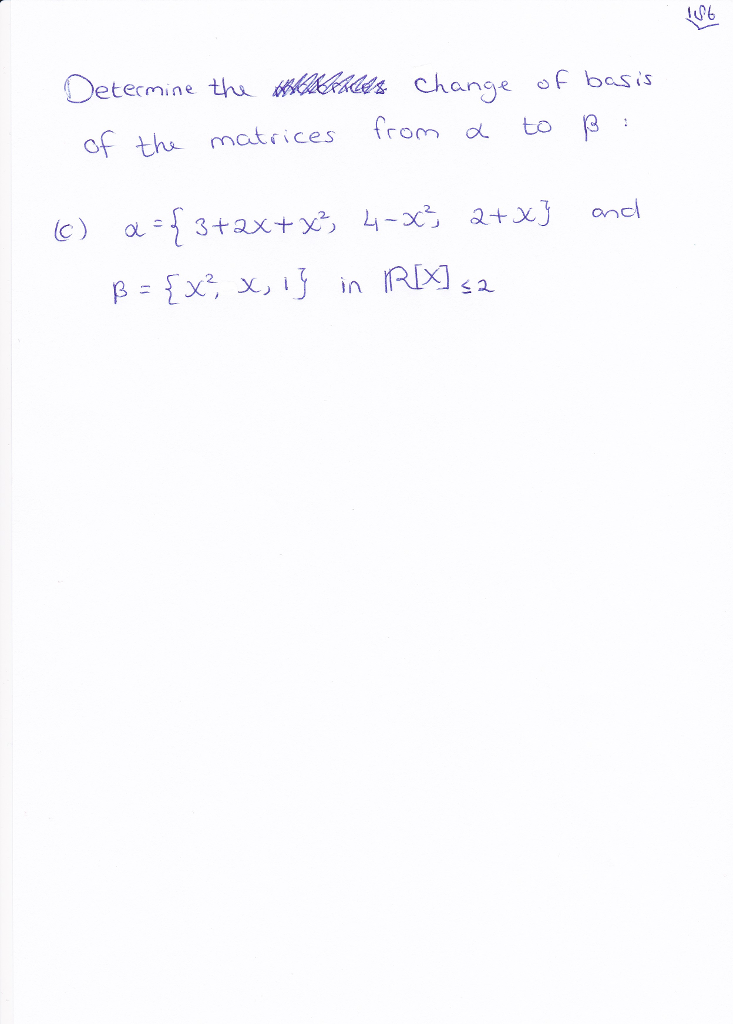 186
Determine the change of basis
of the matrices from α to β :
(c) α = { 3+2x+x², 4-x², 2+x} and
β = {x², x, 1} in ℝ[X]≤2